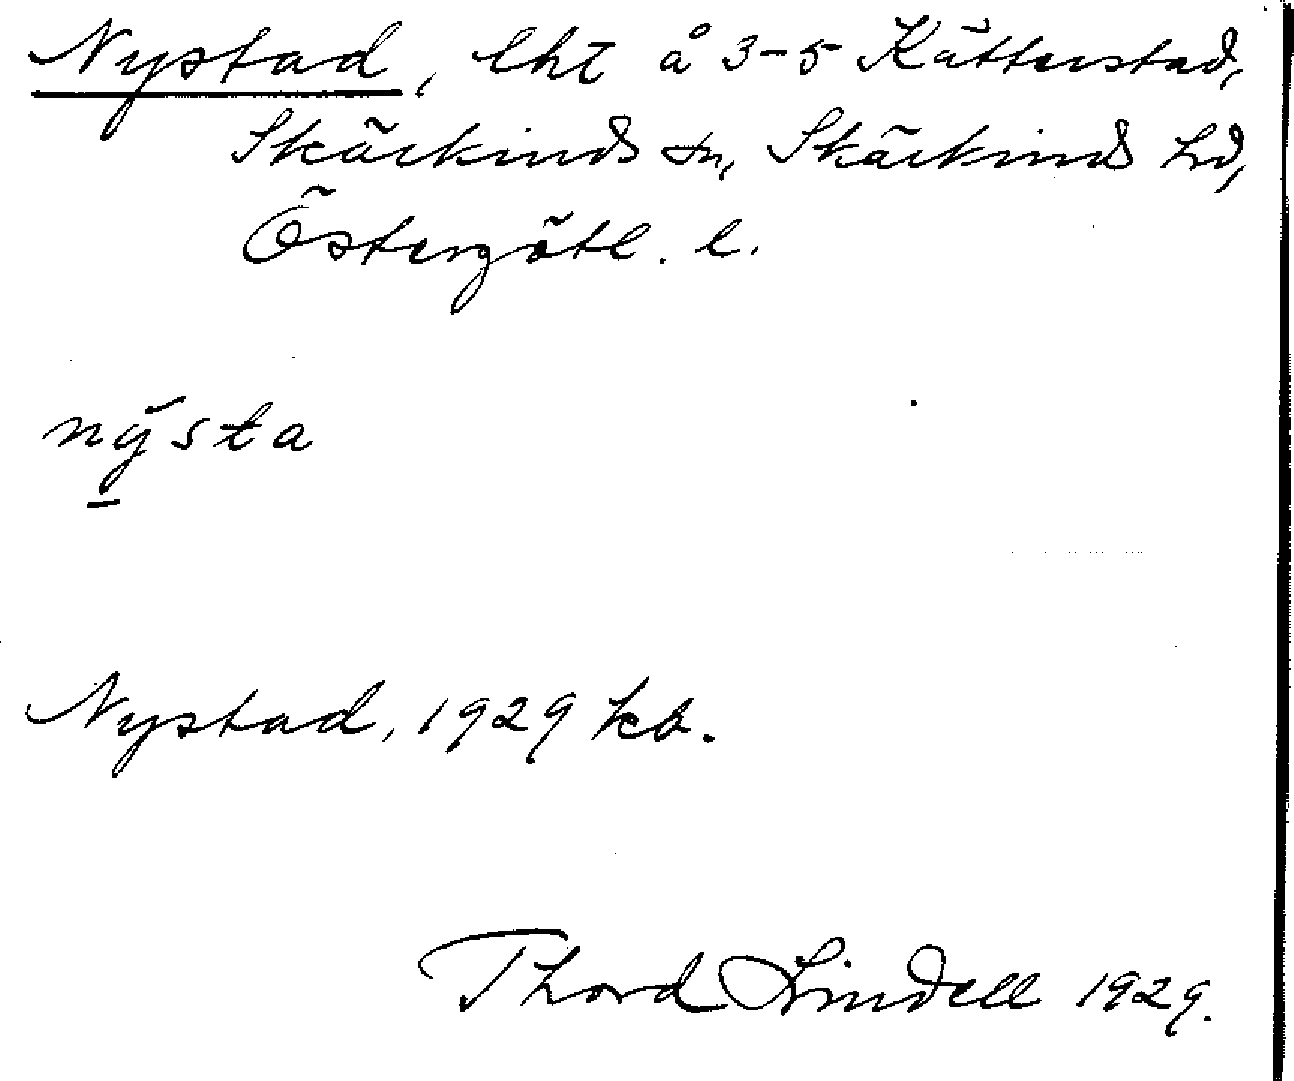 Nystad, lht å 3-5 Kätterstad,
Skärkinds sn, Skärkinds hd,
Östergötl. l.
nýsta
Nystad, 1929 kb.
Thord Lindell 1929.